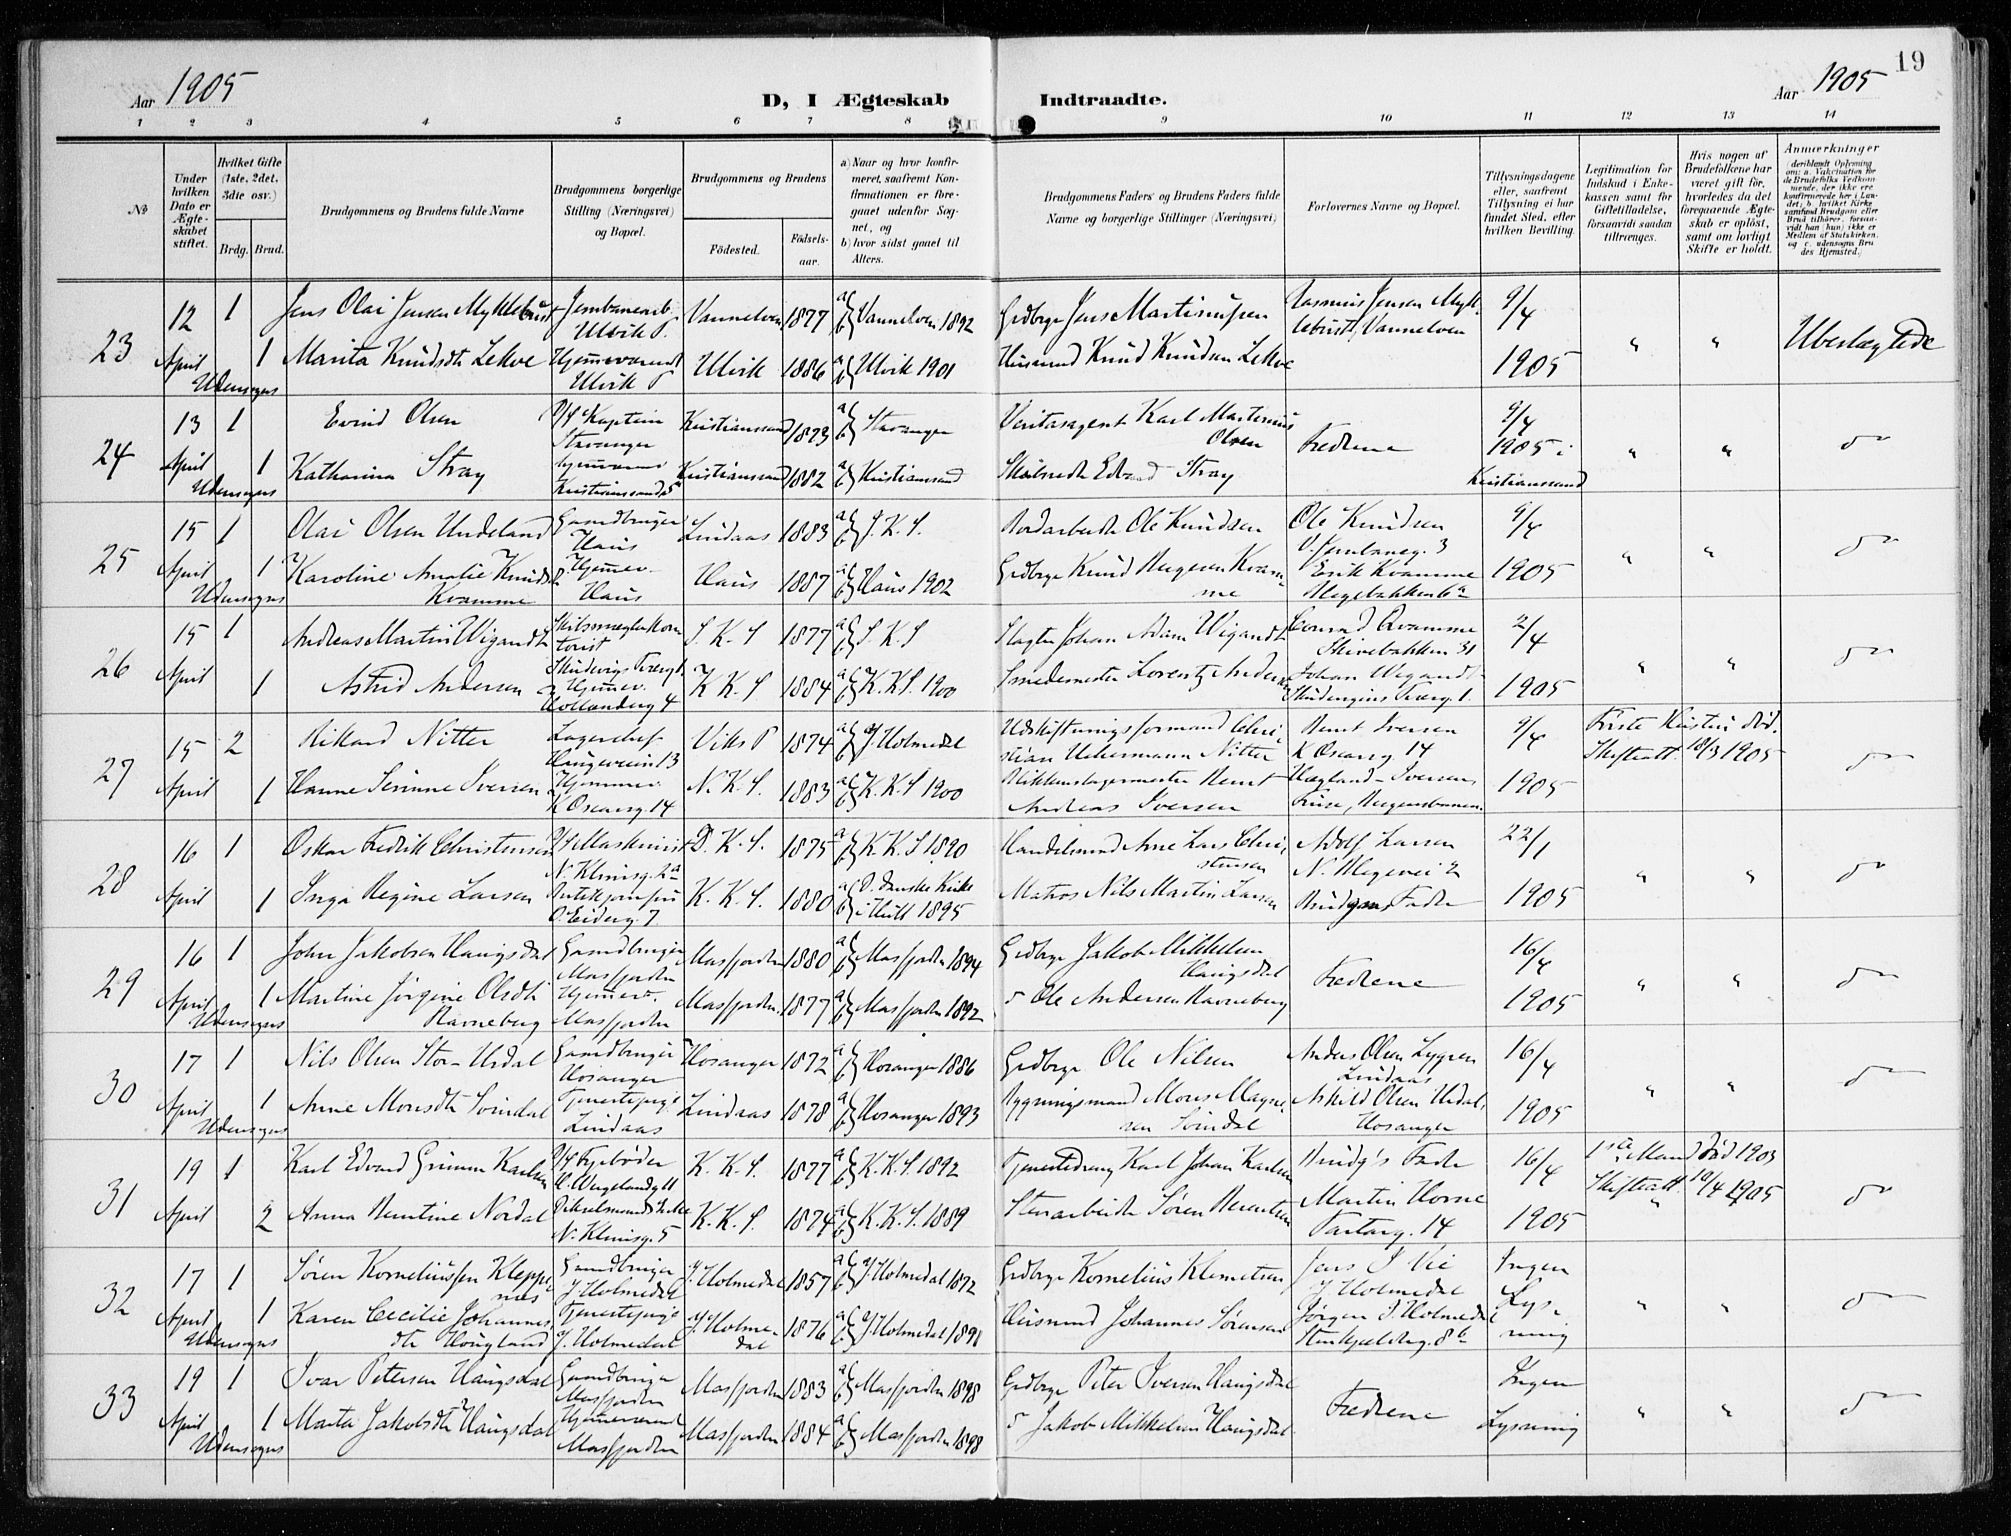 19
Aar 1905
D, I Ægteskab Indtraadte.
Aar 1905
1 2 3 4 5 6 7 8 9 10 11 12 13 14
No
Under hvilken Dato er Ægteskabet stiftet.
Hvilket Gifte (1ste, 2det, 3die osv.)
Brdg. Brud.
Brudgommens og Brudens fulde Navne
Brudgommens borgerlige Stilling (Næringsvei) og Bopæl.
Brudgommens og Brudens
Fødested. Fødselsaar.
a) Naar og hvor konfirmeret, saafremt Konfirmationen er foregaaet udenfor Sognet, og
b) hvor sidst gaaet til Alters.
Brudgommens Faders og Brudens Faders fulde Navne og borgerlige Stillinger (Næringsvei)
Forlovernes Navne og Bopæl.
Tillysningsdagene eller, saafremt Tillysning ei har fundet Sted, efter hvilken Bevilling.
Legitimation for Indskud i Enkekassen samt for Giftetilladelse, forsaavidt saadan tiltrænges.
Hvis nogen af Brudefolkene har været gift før, hvorledes da det foregaaende Ægteskab er opløst, samt om lovligt Skifte er holdt.
Anmærkninger
(deriblandt Oplysning om: a. Vakcination for de Brudefolks Vedkommende, der ikke ere konfirmerede her i Landet; b. hvilket Kirkesamfund Brudgom eller Brud tilhører, forsaavidt han (hun) ikke er Medlem af Statskirken, og c. udensogns Brudes Hjemsted.)
23 12 April Udensogns 1
Jens Olai Jensen Myklebust Jernbanearb. Ulvik P. Vannelven 1877 a b Vannelven 1892 Grdbrgr Jens Martinussen Rasmus Jensen Myklebust, Vannelven 9/4 1905 " " Ubeslægtede
1 Marita Knudsdt Lekve Hjemmeværende Ulvik P Ulvik 1886 a b Ulvik 1901 Husmand Knud Knudsen Lekve
24 13 April Udensogns 1
Eivind Olsen D/S Kaptein Stavanger Kristianssand 1873 a b Stavanger Veritasagent Karl Martinius Olsen Fædrene 9/4 1905 i Kristianssand " " do
1 Katharina Stray Kristianssand S Kristianssand 1882 a b Kristianssand Skibsreder Edvard Stray
25 15 April Udensogns 1
Olai Olsen Undeland Gaardbruger Haus Lindaas 1883 a b J. K. S. Jordarbeider Ole Knudsen Ole Knudsen V. Jernbaneg. 3 9/4 1905 " " do
1 Karoline Amalie Knudsd. Kvamme Hjemmev. Haus Haus 1887 a b Haus 1902 Grdbrgr Knud Mogesen Kvamme Erik Kvamme Hegebakken 6a
26 15 April 1
Andreas Martin Wigandt Skibsmæglerkontorist Skudevigs Tverg 1 S. K. S 1877 a b S. K. S Slagter Johan Adam Wigandt Conrad Kvamme Skivebakken 31 2/4 1905 " " do
1 Astrid Andersen Hjemmev. Hollenderg 4 K K. S 1884 a b K. K S. 1900 Smedemester Lorentz Andersen Johan Wigandt Skudevigens Tverg. 1.
27 15 April 2
Rikard Nitter Lagerchef Haugeveien 13 Viks P 1874 a b Y. Holmedal Udskiftningsformand Christian Uchermann Nitter Bernt Iversen K Oscarsg 14 9/4 1905 Første Hustru død. Skifteatt. 18/3 1905 do
1 Hanne Serinne Iversen Hjemmev. K Oscarsg. 14 N. K. S. 1883 a b K. K. S 1900 Blikkenslagermester Bernt Andreas Iversen
28 16 April 1
Oskar Fredrik Christensen D/S Maskinist N. Klinisg. 2a D. K. S. 1875 a b K. K. S 1890 Handelsmand Arne Lars Christensen Adolf Larsen N. Hegevei 2 22/1 1905 " " do
1 Inga Regine Larsen Butikjomfru O. Eiderg. 7 K. K. S. 1880 a b D. danske Kirke i Hull 1895 Matros Nils Martin Larsen Brudgoms Fader
29 16 April Udensogns 1
John Jakobsen Haugsdal Gaardbruger Masfjorden Masfjorden 1880 a b Masfjorden 1894 Grdbrgr Jakob Mikkelsen Haugsdal Fædrene 16/4 1905 " " do
1 Martine Jørgine Olsdt. Ravneberg Hjemmev. Masfjorden Masfjorden 1877 a b Masfjorden 1892 do Ole Andersen Ravneberg
30 17 April Udensogns 1
Nils Olsen Stor-Urdal Gaardbruger Hosanger Hosanger 1872 a b Hosanger 1886 Grdbrgr Ole Nilsen Anders Olsen Lygren Lindaas 16/4 1905 " " do
1 Anne Monsdtr Sørindal Tjenestepige Lindaas Lindaas 1878 a b Hosanger 1893 Bygningsmand Mons Magnesen Sørindal Askild Olsen Urdal, Hosanger
31 19 April 1
Karl Edvard Grimm Karlsen D/S Fyrbøder H. Wergelandsg 11 K. K. S. 1877 a b K. K. S. 1892 Tjenestedreng Karl Johan Karlsen Brudg's Fader 16/4 1905 1ste Mand død 1903 Skifteatt. 19/4 1905 do
2 Anna Berntine Nordal N. Klinisg. 5 K. K. S. 1874 a b K. K. S. 1889 Stenarbeider Søren Berentsen Martin Horne Tartarg. 14
32 17 April Udensogns 1
Søren Korneliussen Kleppenes Gaardbruger Y Holmedal Y. Holmedal 1857 a b Y Holmedal 1872 Grdbrgr Kornelius Klemetsen Jens S Vie Y Holmedal Ingen Lysning " " do
1 Karen Cecilie Johannesdtr Hougland Tjenestepige Y. Holmedal Y. Holmedal 1876 a b Y Holmedal 1891 Husmand Johannes Sørensen Jørgen S. Holmedal Stenkjelderg. 8b
33 19 April Udensogns 1
Ivar Petersen Haugsdal Gaardbruger Masfjorden Masfjorden 1883 a b Masfjorden 1898 Grdbrgr Peter Iversen Haugsdal Fædrene Ingen Lysning " " do
1 Marta Jakobsdtr Haugsdal Hjemmeværende Masfjorden Masfjorden 1884 a b Masfjorden 1898 do Jakob Mikkelsen Haugsdal